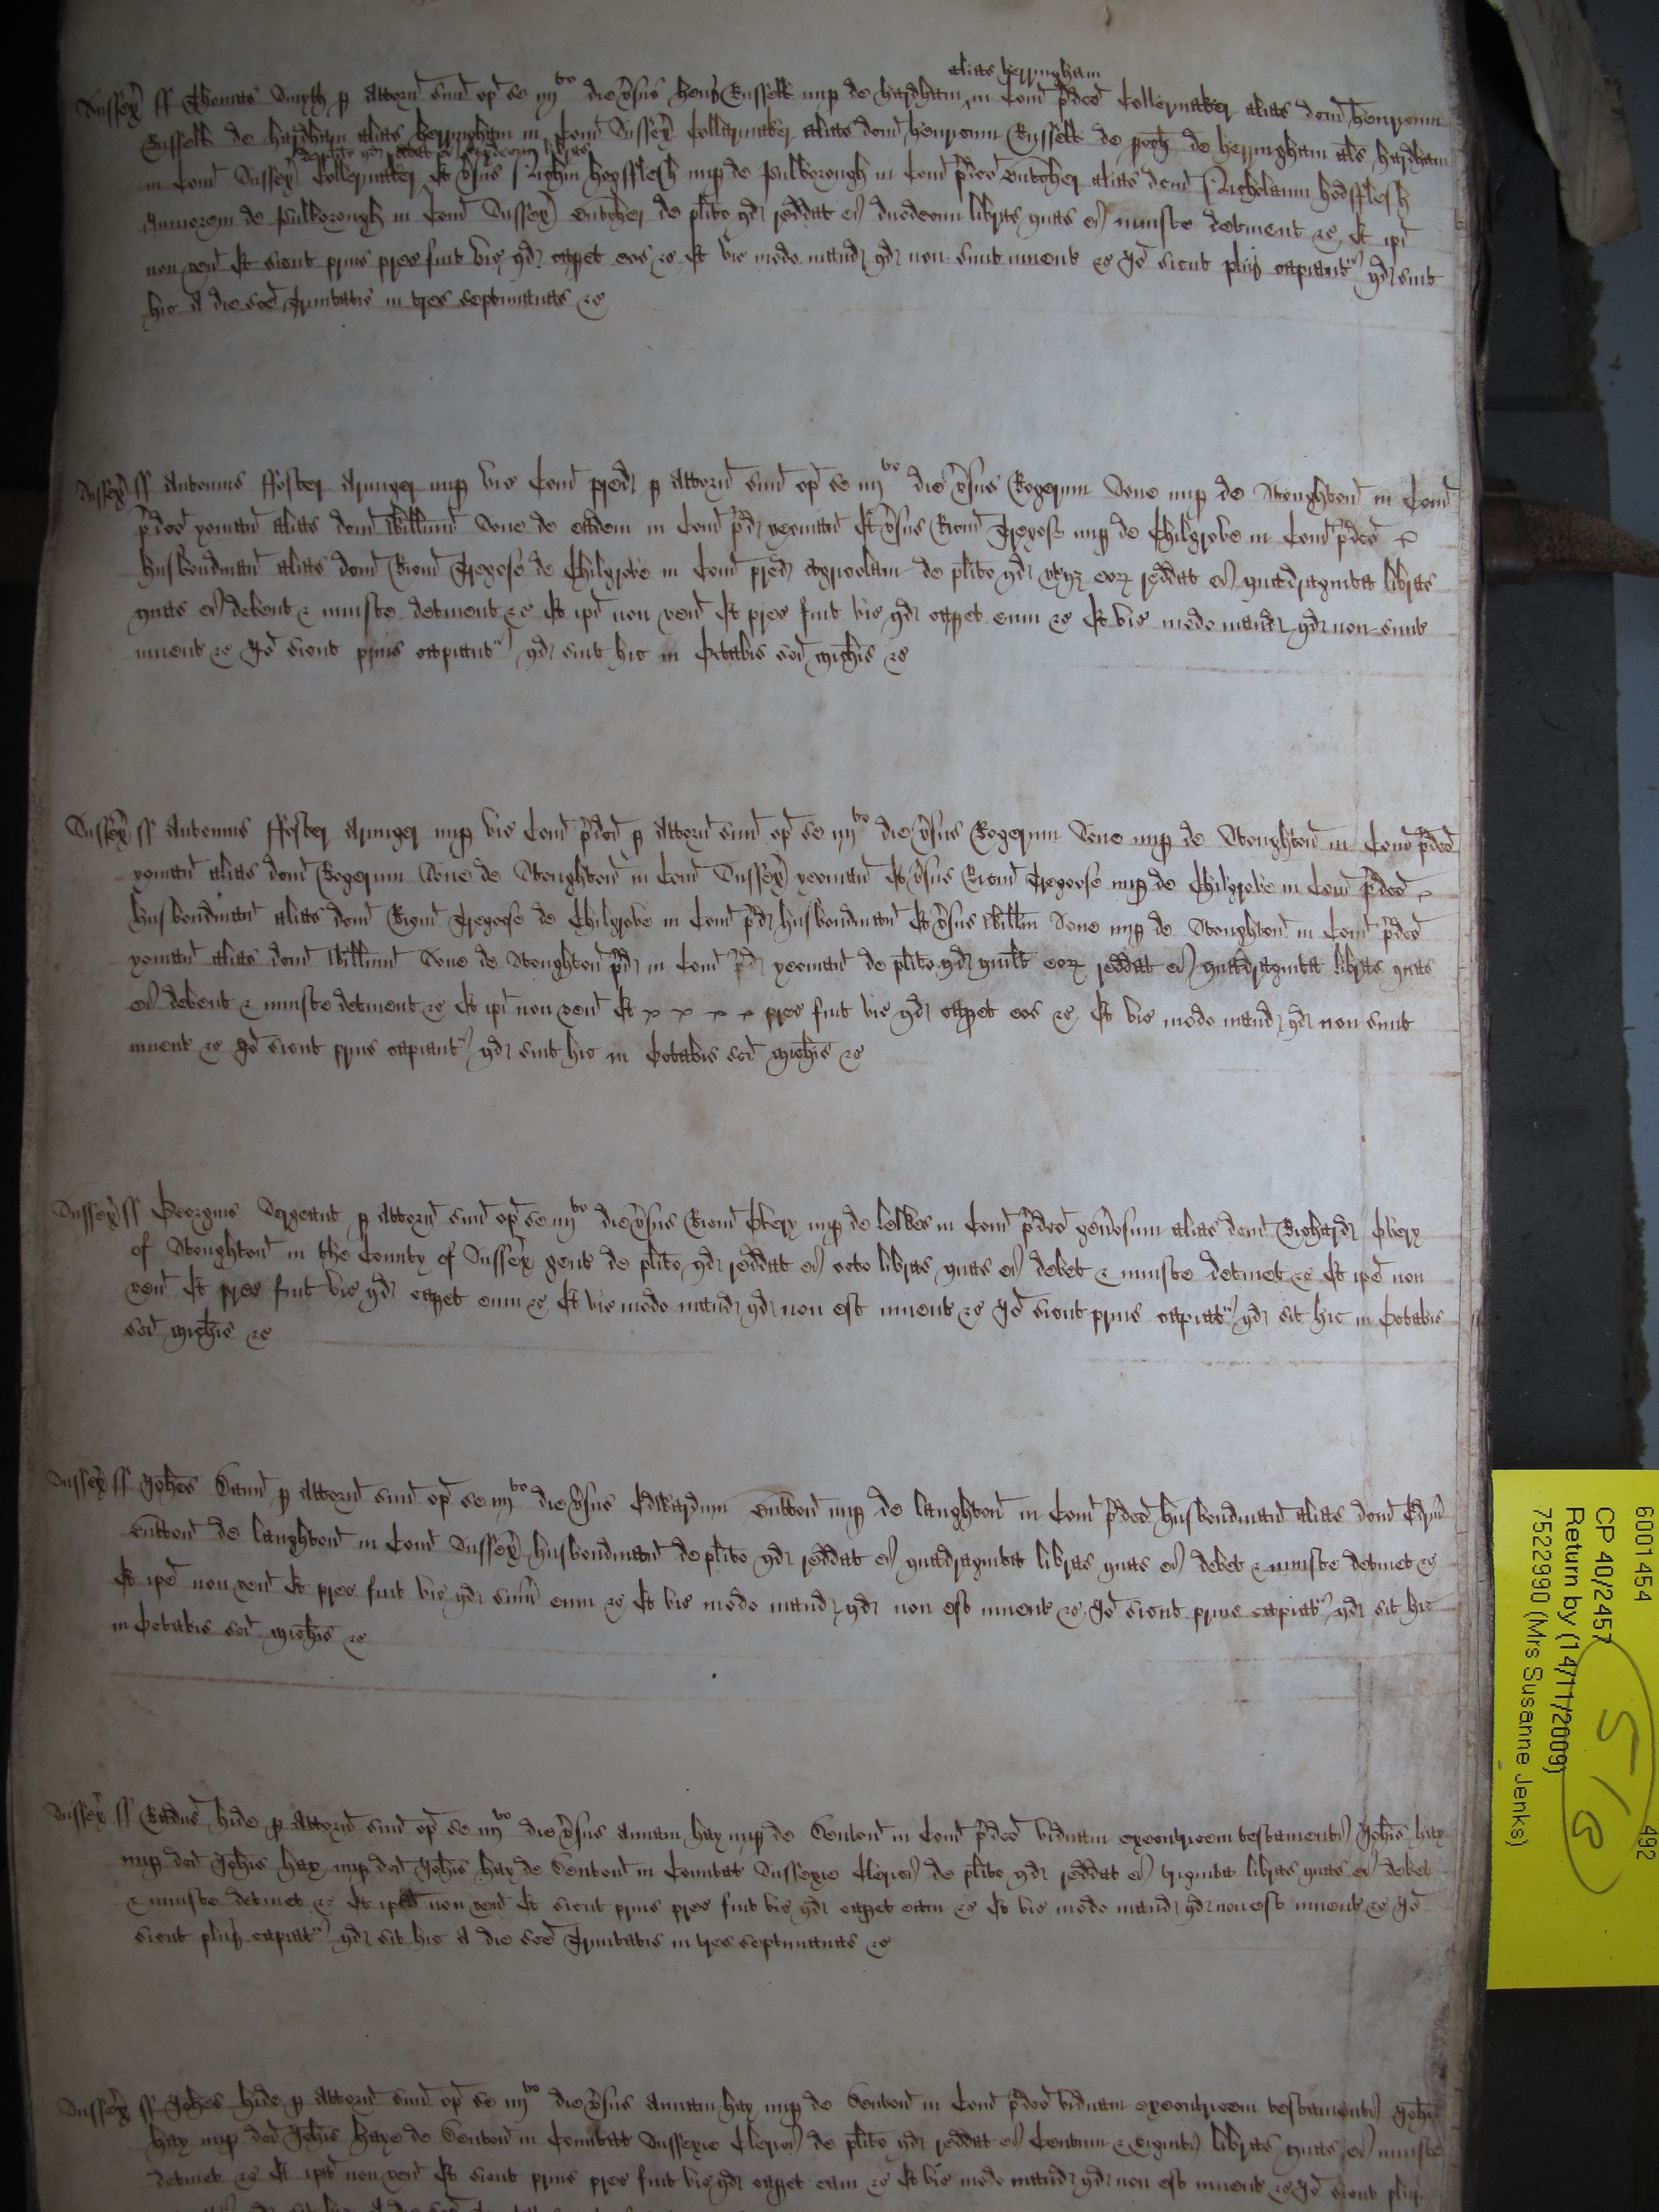 alias heryngham
Sussex ss Thomas Smyth p Attorn suu op se iiijto die vsus Henr Russell nup de hardham in Com pdco Collermaker alias dcm henricum
Russell de hardham alias heryngham in Com Sussex Collarmaker alias dcm henricum Russell de poch de heryngham als hardham
in Com Sussex Collermaker Et vsus Nichm hogfflesh nup de pulborough in Com pdco Butcher alias dcm Nicholaum hogfflesh
de pulborough in Com Sussex Butcher de plito qd reddat ei duodecim libras quas ei iniuste detinent &c Et ipi
non ven Et sicut prius prec fuit vic qd capet eos &c Et vic modo mand qd non sunt invent &c Io sicut plur capiantr qd sint
hic A die sce Trinitatis in tres septimanas &c
Sussex ss Antonius ffoster Armiger nup vic Com pred p Attorn suu op se iiijto die vsus Rogerum Sone nup de Stoughton in Com
pdco yoman alias dcm Willmum Sone de eadem in Com pd yeoman Et vsus Ricm Tregose nup de Chilgrove in Com pdco
husbondman alias dcm Ricm Tregose de Chilgrove in Com pred agricolam de plito qd utrq eor reddat ei quadraginta libras
quas ei debent & iniuste detinent &c Et ipi non ven Et prec fuit vic qd capet eum &c Et vic modo mand qd non sunt
invent &c Io sicut prius capiantr qd sint hic in Octabis sci Michis &c
Sussex ss Antonius ffoster Armiger nup vic Com pdco p Attorn suu op se iiijto die vsus Rogerum Sone nup de Stoughton in Com pdco
yoman alias dcm Rogerum Sone de Stoughton in Com Sussex yeoman Et vsus Ricm Tregose nup de Chilgrove in Com pdco
husbondman alias dcm Ricm Tregose de Chilgrove in Com pd husbondman Et vsus Willm Sone nup de Stoughton in Com pdco
yoman alias dcm Willmum Sone de Stoughton pd in Com pd yeoman de plito qd quilt eor reddat ei quadraginta libras quas
ei debent & iniuste detinent &c Et ipi non ven Et prec fuit vic qd capet eos &c Et vic modo mand qd non sunt
invent &c Io sicut prius capiantr qd sint hic in Octabis sci Michis &c
Sussex ss Georgius Sergeant p Attorn suu op se iiijto die vsus Ricm Overy nup de in Com pdco genosum alias dcm Richard Overy
of Stoughton in the County of Sussex gent de plito qd reddat ei octo libras quas ei debet & iniuste detinet &c Et ipe non
ven Et prec fuit vic qd capet eum &c Et vic modo mand qd non est invent &c Io sicut prius capiatr qd sit hic in Octabis
sci Michis &c
Sussex ss Johes p Attorn suu op se iiijto die vsus Edwardum Button nup de laughton in Com pdco husbondman alias dcm Edrm
Button de laughton in Com Sussex husbondman de plito qd reddat ei quadraginta libras quas ei debet & iniuste detinet &c
Et ipe non ven Et prec fuit vic qd sum eum &c Et vic modo mand qd non est invent &c Io sicut prius capiatr qd sit hic
in Octabis sci Michis &c
Sussex ss Radus hide p Attorn suu op se iiijto die vsus Annam hay nup de in Com pdco viduam executricem testamenti Johis hay
nup dci Johis hay nup dci Johis hay de in Comitat Sussexie Clerici de plito qd reddat ei triginta libras quas ei debet
& iniuste detinet &c Et ipa non ven Et sicut prius prec fuit vic qd capet eam &c Et vic modo mand qd non est invent &c Io
sicut plur capiatr qd sit hic A die sce Trinitatis in tres septimanas &c
Sussex ss Johes hide p Attorn suu op se iiijto die vsus Annam hay nup de in Com pdco viduam executricem testamenti Johis
hay nup dci Johis haye de in Comitat Sussexie Clerici de plito qd reddat ei Centum & viginti libras quas ei iniuste
detinet &c Et ipa non ven Et sicut prius prec fuit vic qd capet eam &c Et vic modo mand qd non est invent &c Io sicut plur
6001454 492
CP 40/2457
Return by (14/11/2009)
7522990 (Mrs Susanne Jenks)